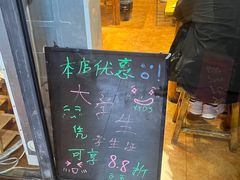 本店优惠
大学生
凭学生证
可享8.8折